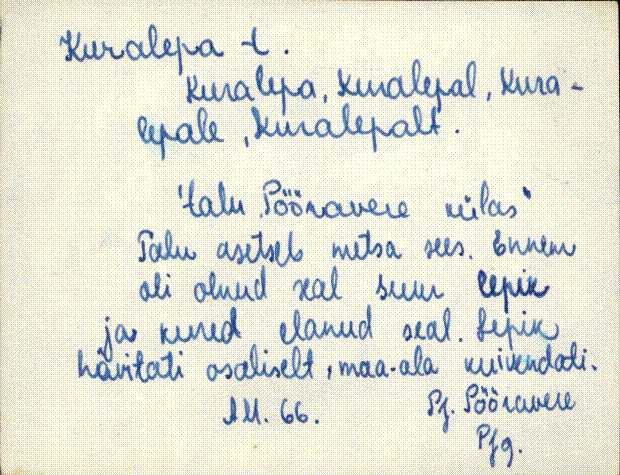 Kuralepa t.
Kuralepa, Kuralepal, Kura-
lepale, Kuralepalt.
'talu Pööravere külas'
Talu asetseb metsa sees. Ennem
oli olnud seal suur lepik
ja kured elanud seal. Lepik
hävitati osaliselt, maa-ala kuivendati.
AM. 66. Pj. Pööravere
Pjg.